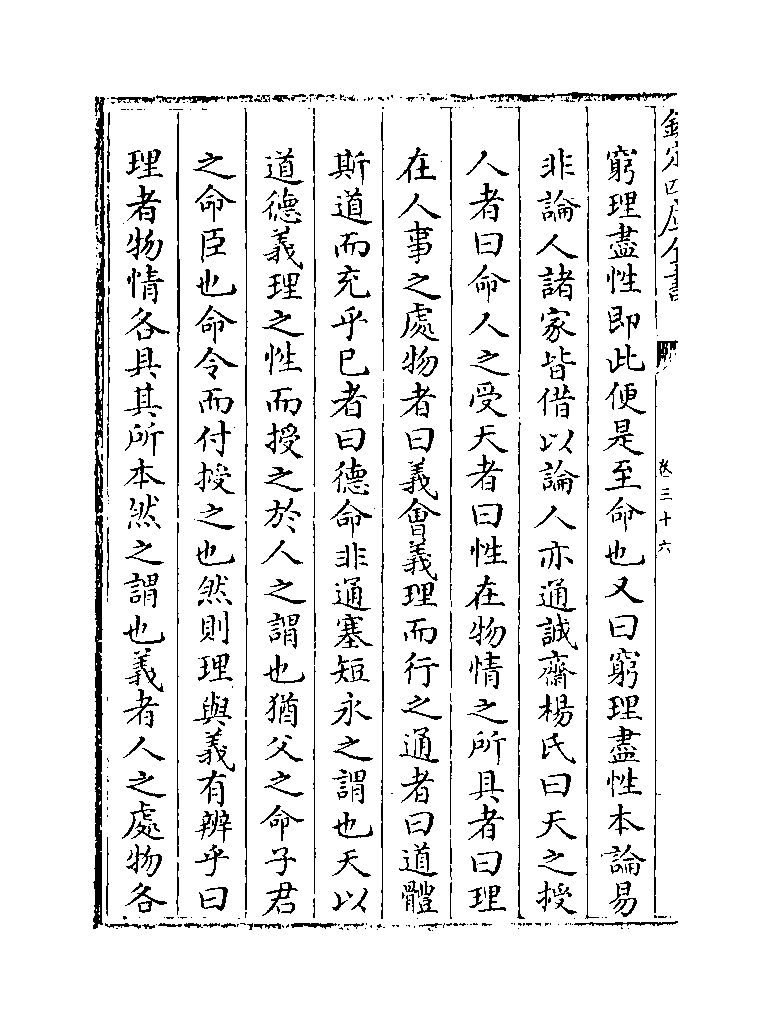 欽定四庫全書
卷三十六
窮理盡性即此便是至命也又曰窮理盡性本論易
非論人諸家皆借以論人亦通誠齋楊氏曰天之授
人者曰命人之受天者曰性在物情之所具者曰理
在人事之處物者曰義會義理而行之通者曰道體
斯道而充乎已者曰德命非通塞短永之謂也天以
道德義理之性而授之於人之謂也猶父之命子君
之命臣也命令而付授之也然則理與義有辨乎曰
理者物情各具其所本然之謂也義者人之處物各